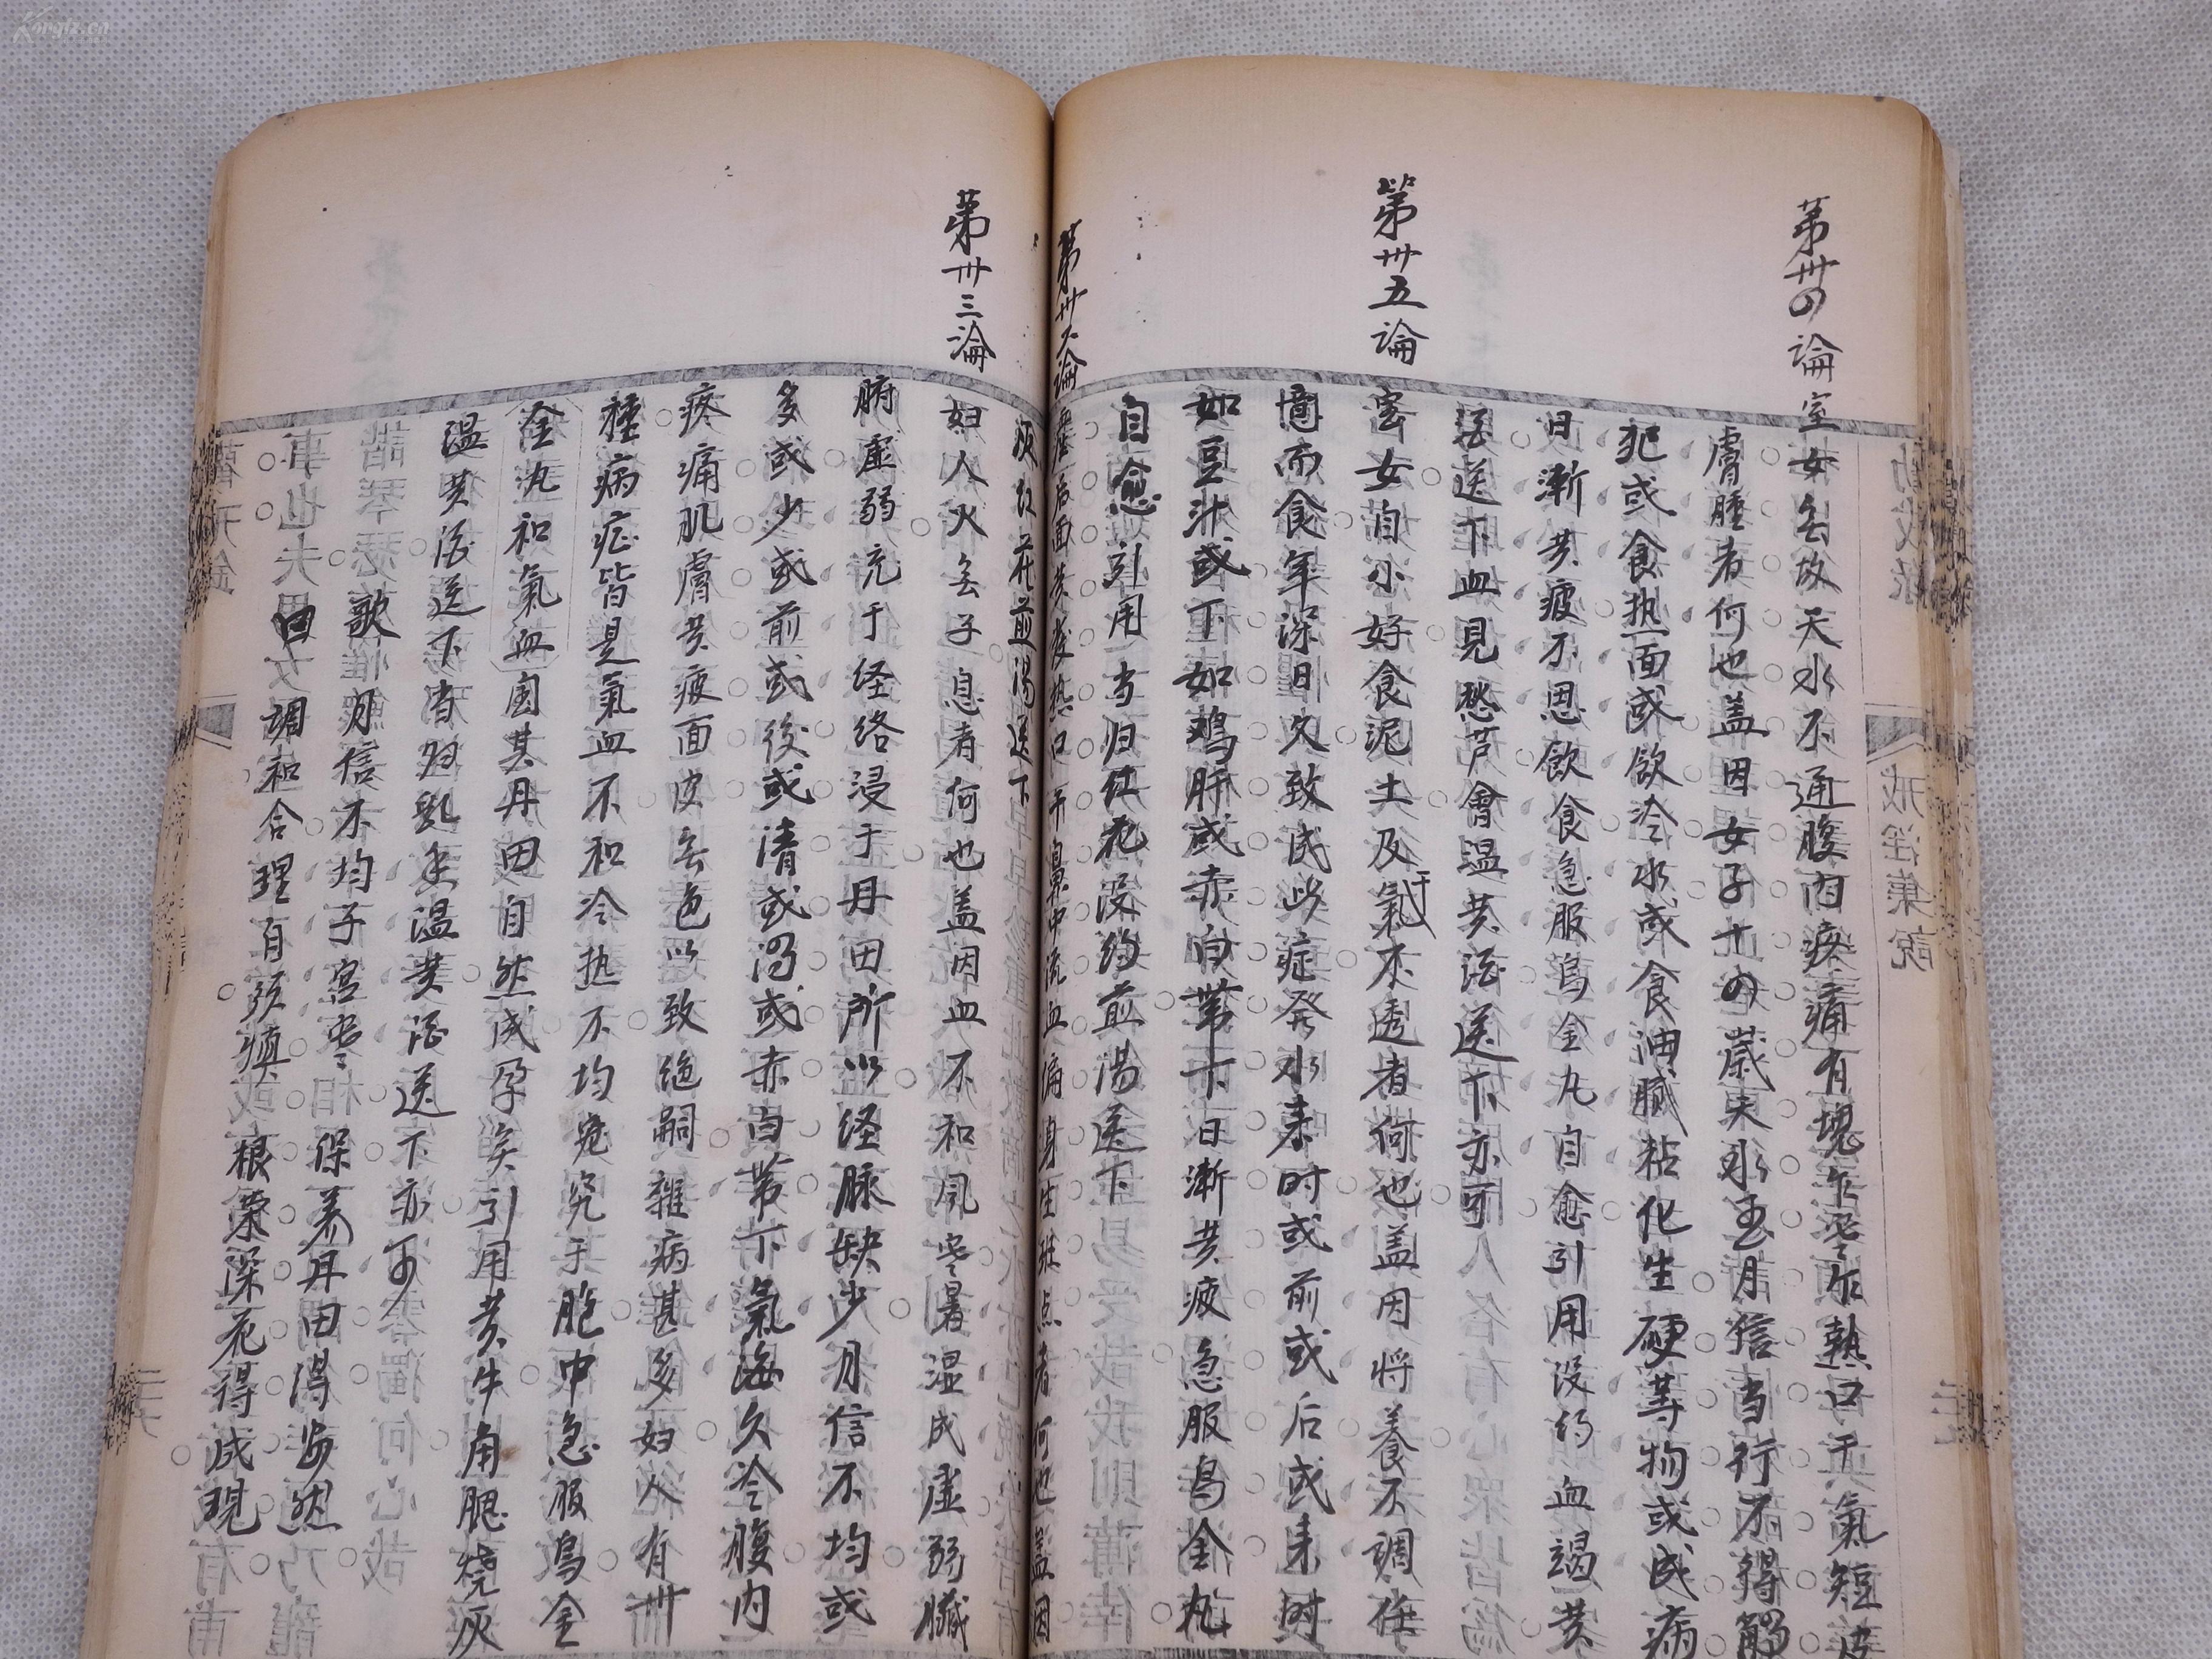 第卅四論
室女無故天水不通腹内疼痛有塊乍寒乍熱口干氣短皮
膚腫者何也盖因女子十四歲天水至月信当行不得觸
犯或食热面或飲冷水或食油膩粘化生硬等物或成病
日漸黄瘦不思飲食急服烏金丸自愈引用没药血竭黄
酒送下血見愁芦會温黄酒送下亦可
第卅五論
室女自小好食泥土及氣不透者何也盖因将養不調任
意而食年深日久致成此症癸水来时或前或后或来时
如豆汁或下如鸡肝或赤白帯下日漸黄瘦急服烏金丸
自愈引用当归红花没药煎湯送下
第卅六論
産后面黄發热口干鼻中流血偏身生班点者何也盖因
红花煎湯送下
第卅三論
妇人久無子息者何也盖因血不和風寒暑湿成虚弱臓
腑虚弱充于经络浸于丹田所以经脉缺少月信不均或
多或少或前或後或清或濁或赤白帯下氣海久冷腹内
疼痛肌膚黄瘦面皮無色以致绝嗣雜病甚多妇人有卅
種病症皆是氣血不和冷热不均宛究于胞中急服烏金
金丸和氣血固其丹田自然成孕矣引用黄牛角腮燒灰
温黄酒送下当归乳香温黄酒送下亦可
歌
曰
月信不均子宫寒
保养丹田得安然
調和合理自预慎
根荣深花得成現
戒淫集説
Kongfz.cn